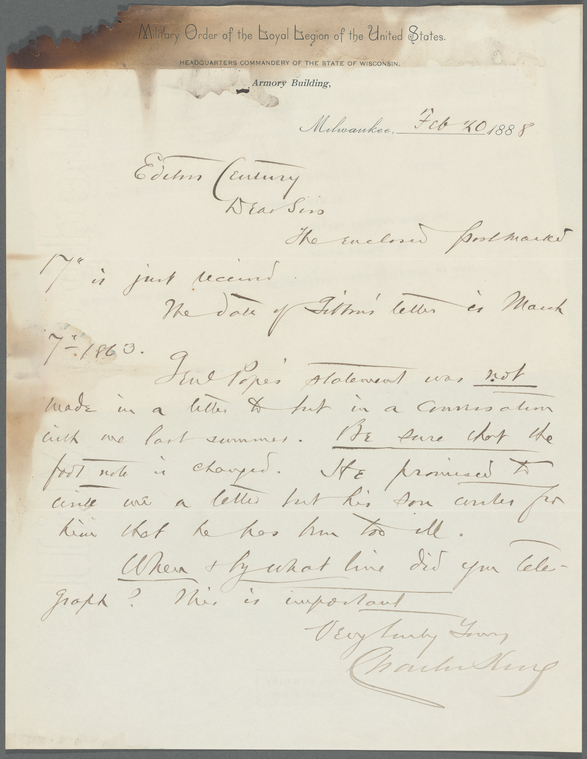 Military Order of the Loyal Legion of the United States.
HEADQUARTERS COMMANDERY OF THE STATE OF WISCONSIN,
Armory Building,
Milwaukee, Feb 20 1888
Editor Century
Dear Sirs
The enclosed postmarked
17th is just received
The date of letter is March
7th 1863.
Genl Pope's statement was not
made in a letter to but in a conversation
with me last summer. Be sure that the
foot note is changed. He promised to
write me a letter but his son writes for
him that he has been too ill.
When & by what line did you tele-
graph? This is important
Very truly Yours
Charles King